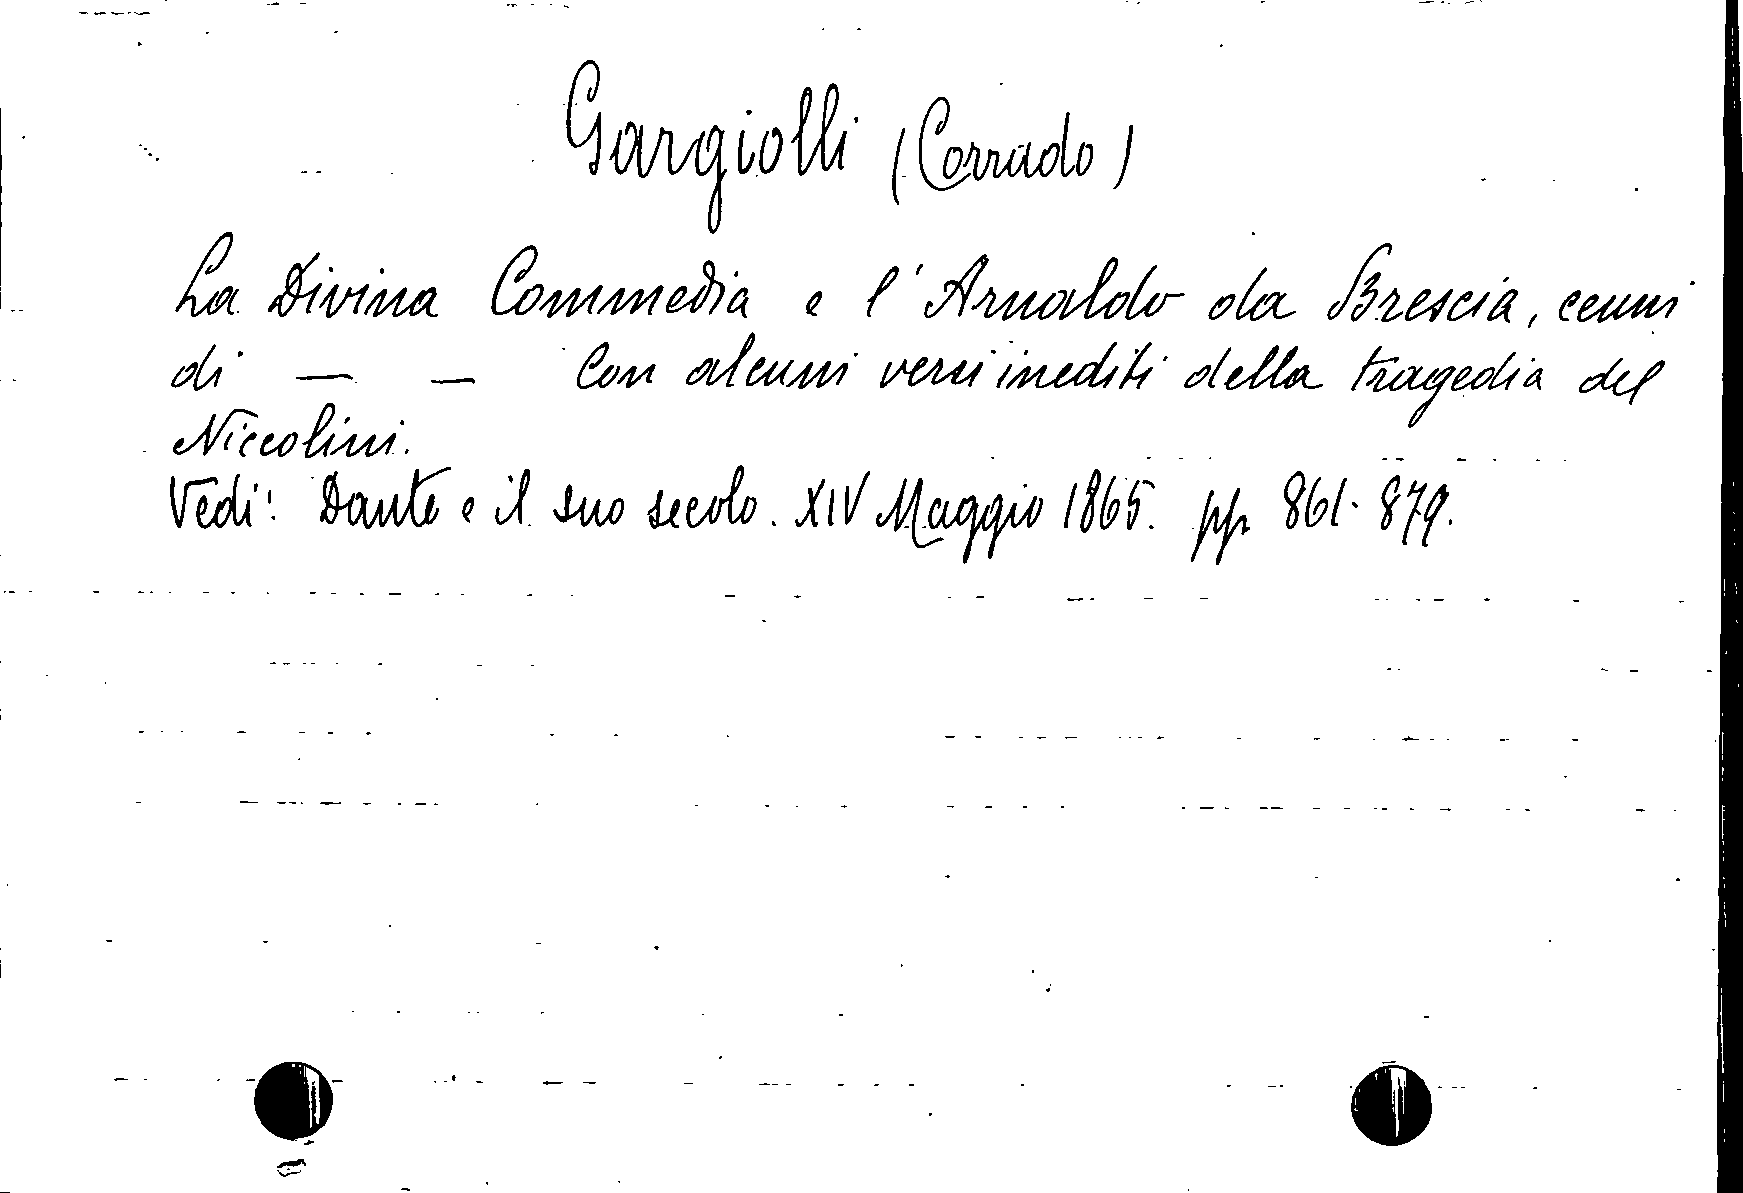 Gargiolli (Corrado)
La Divina Commedia e l'Arnaldo da Brescia, cenni
di — — Con alcuni versi inediti della tragedia del
Niccolini.
Vedi: Dante e il suo secolo. XIV Maggio 1865. pp. 861-879.